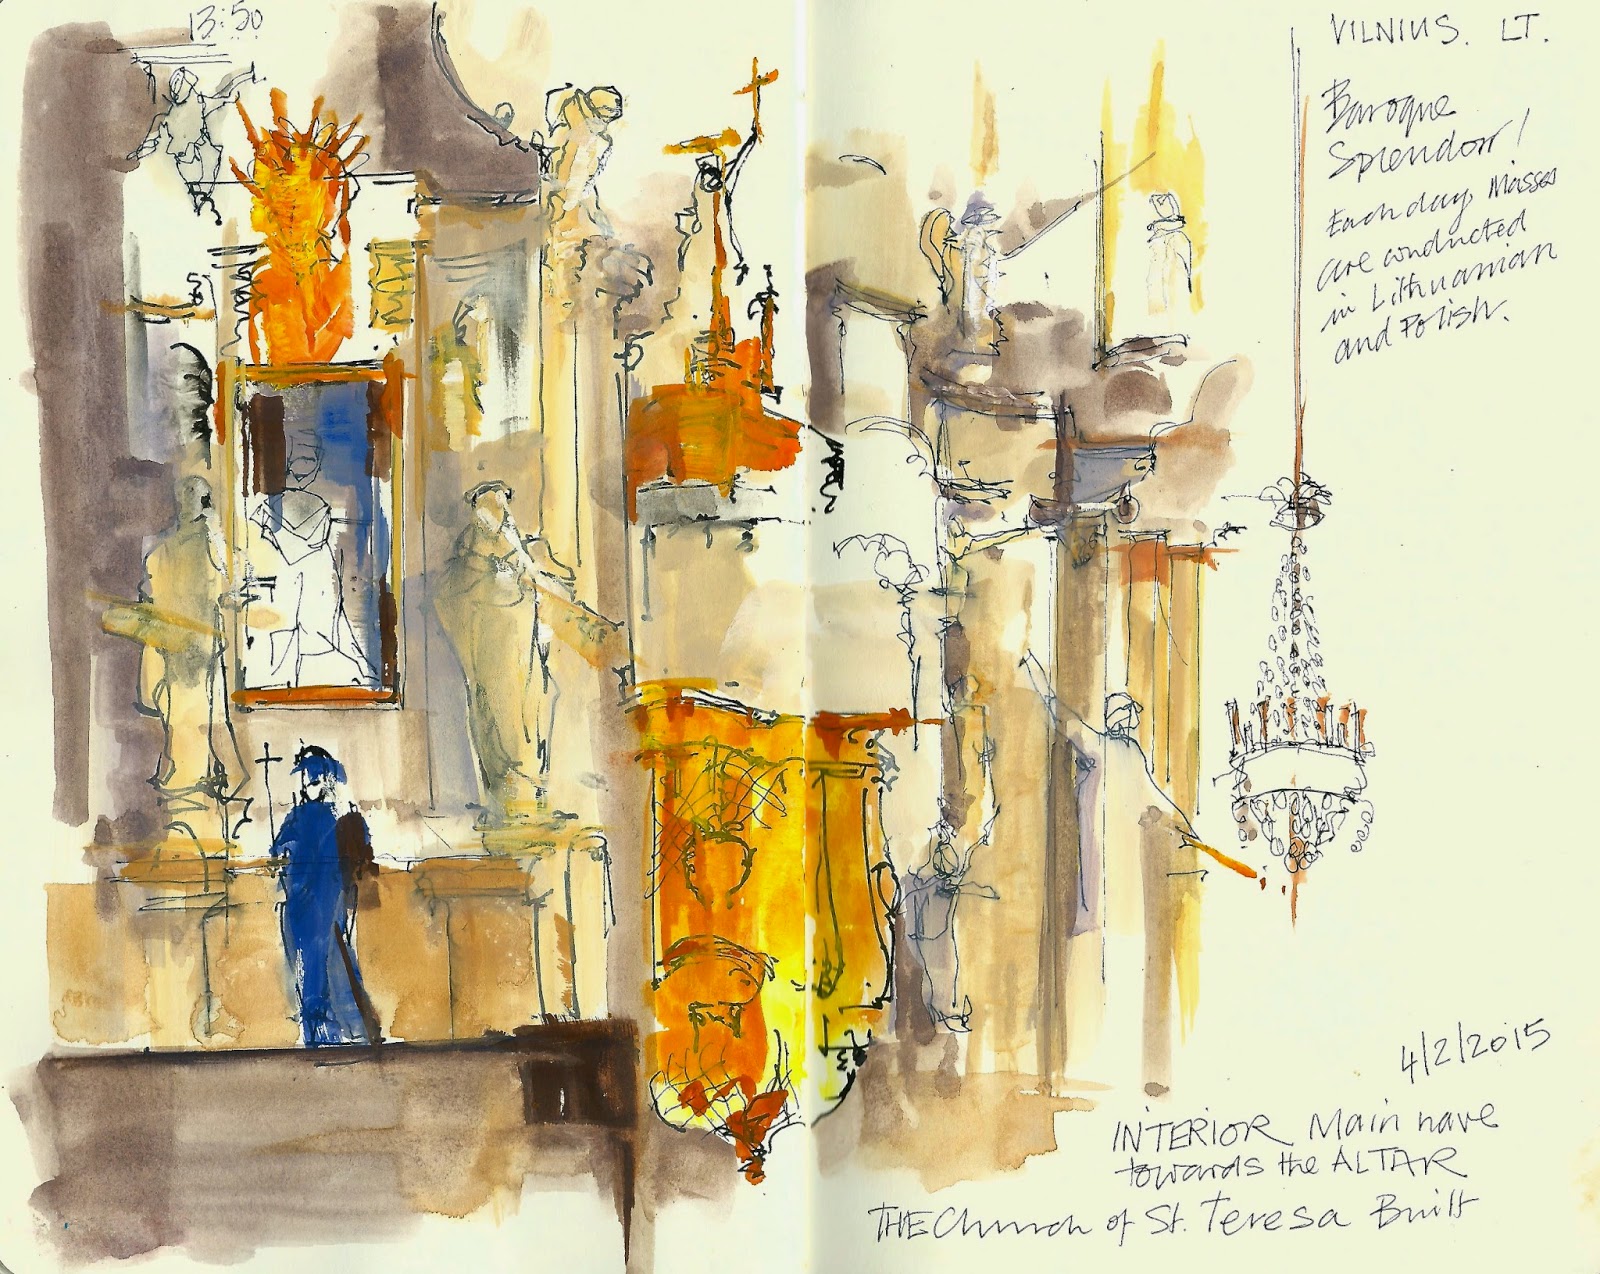 13:50
VILNIUS. LT.
Baroque
Splendor!
Each day Masses
are conducted
in Lithuanian
and Polish.
4/2/2015
INTERIOR Main nave
towards the ALTAR
THE Church of St. Teresa Built